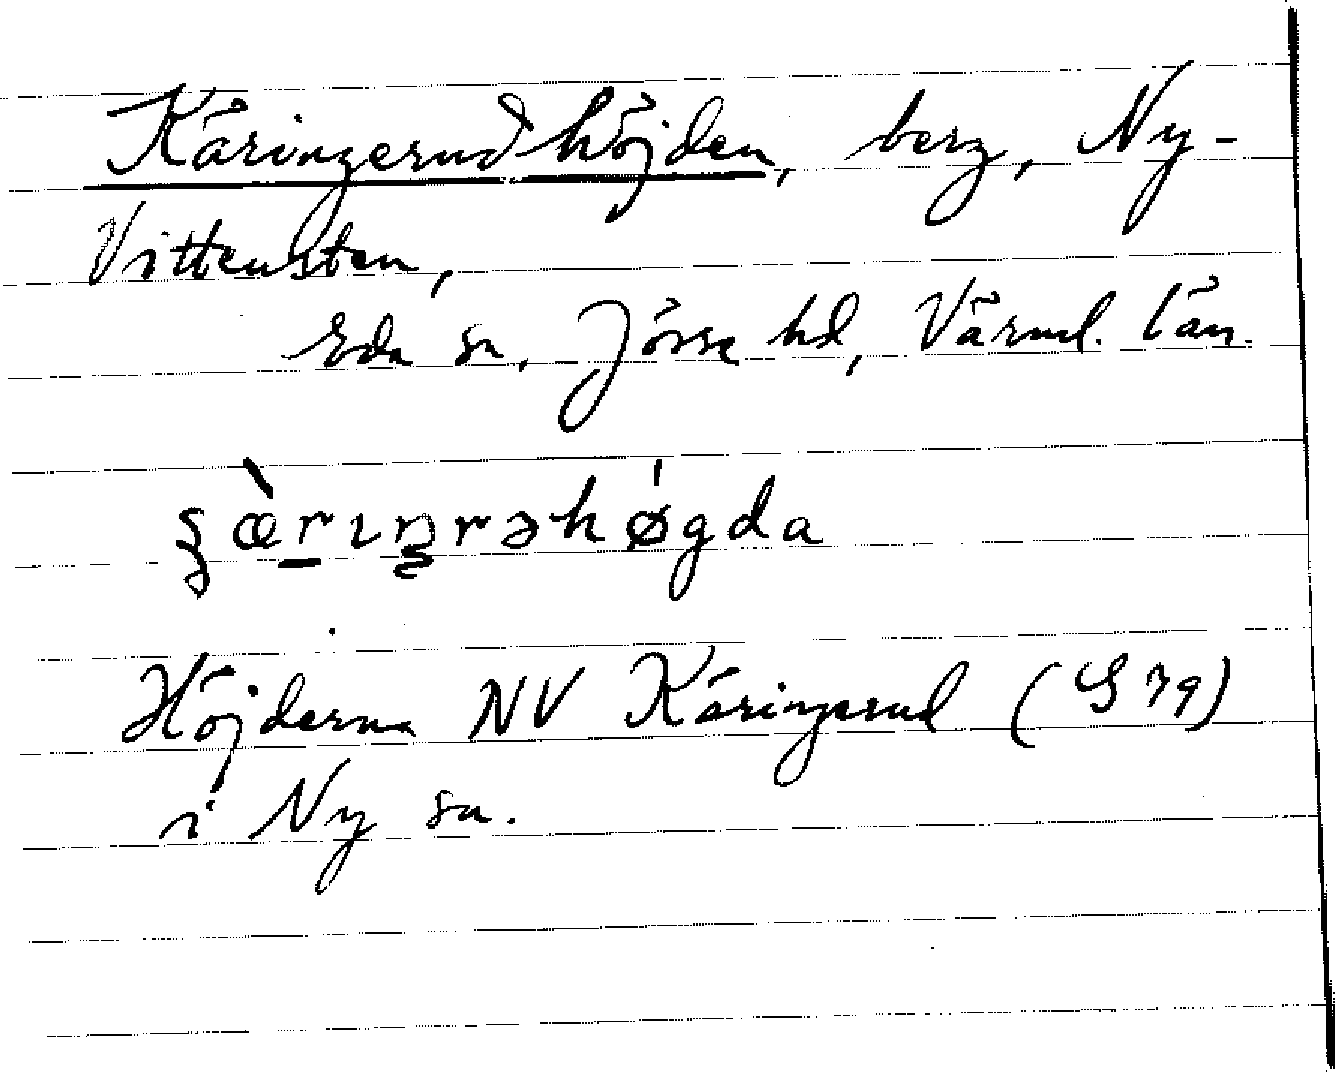 Käringerudhöjden, berg, Ny-
Vittensten,
Eda sn, Jösse hd, Värml. län.
ʂæ̀rıŋrəhǿgda
Höjderna NV Käringerud (S 79)
i Ny sn.